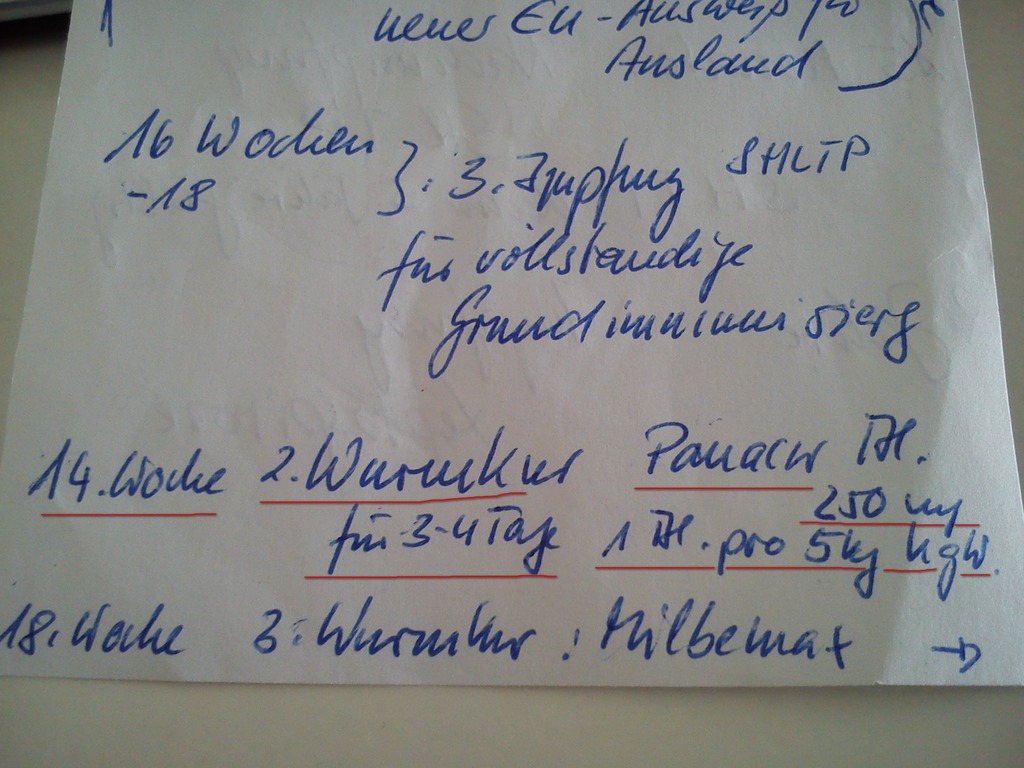 neuer EU-Ausweis für
Ausland
16 Wochen
-18
}: 3. Impfung SHLTP
für vollständige
Grundimmunisierg
14. Woche 2. Wurmkur Panacur Tbl.
250 mg
für 3-4 Tage 1 Tbl. pro 5kg KgW.
18. Woche 3. Wurmkur : Milbemax →